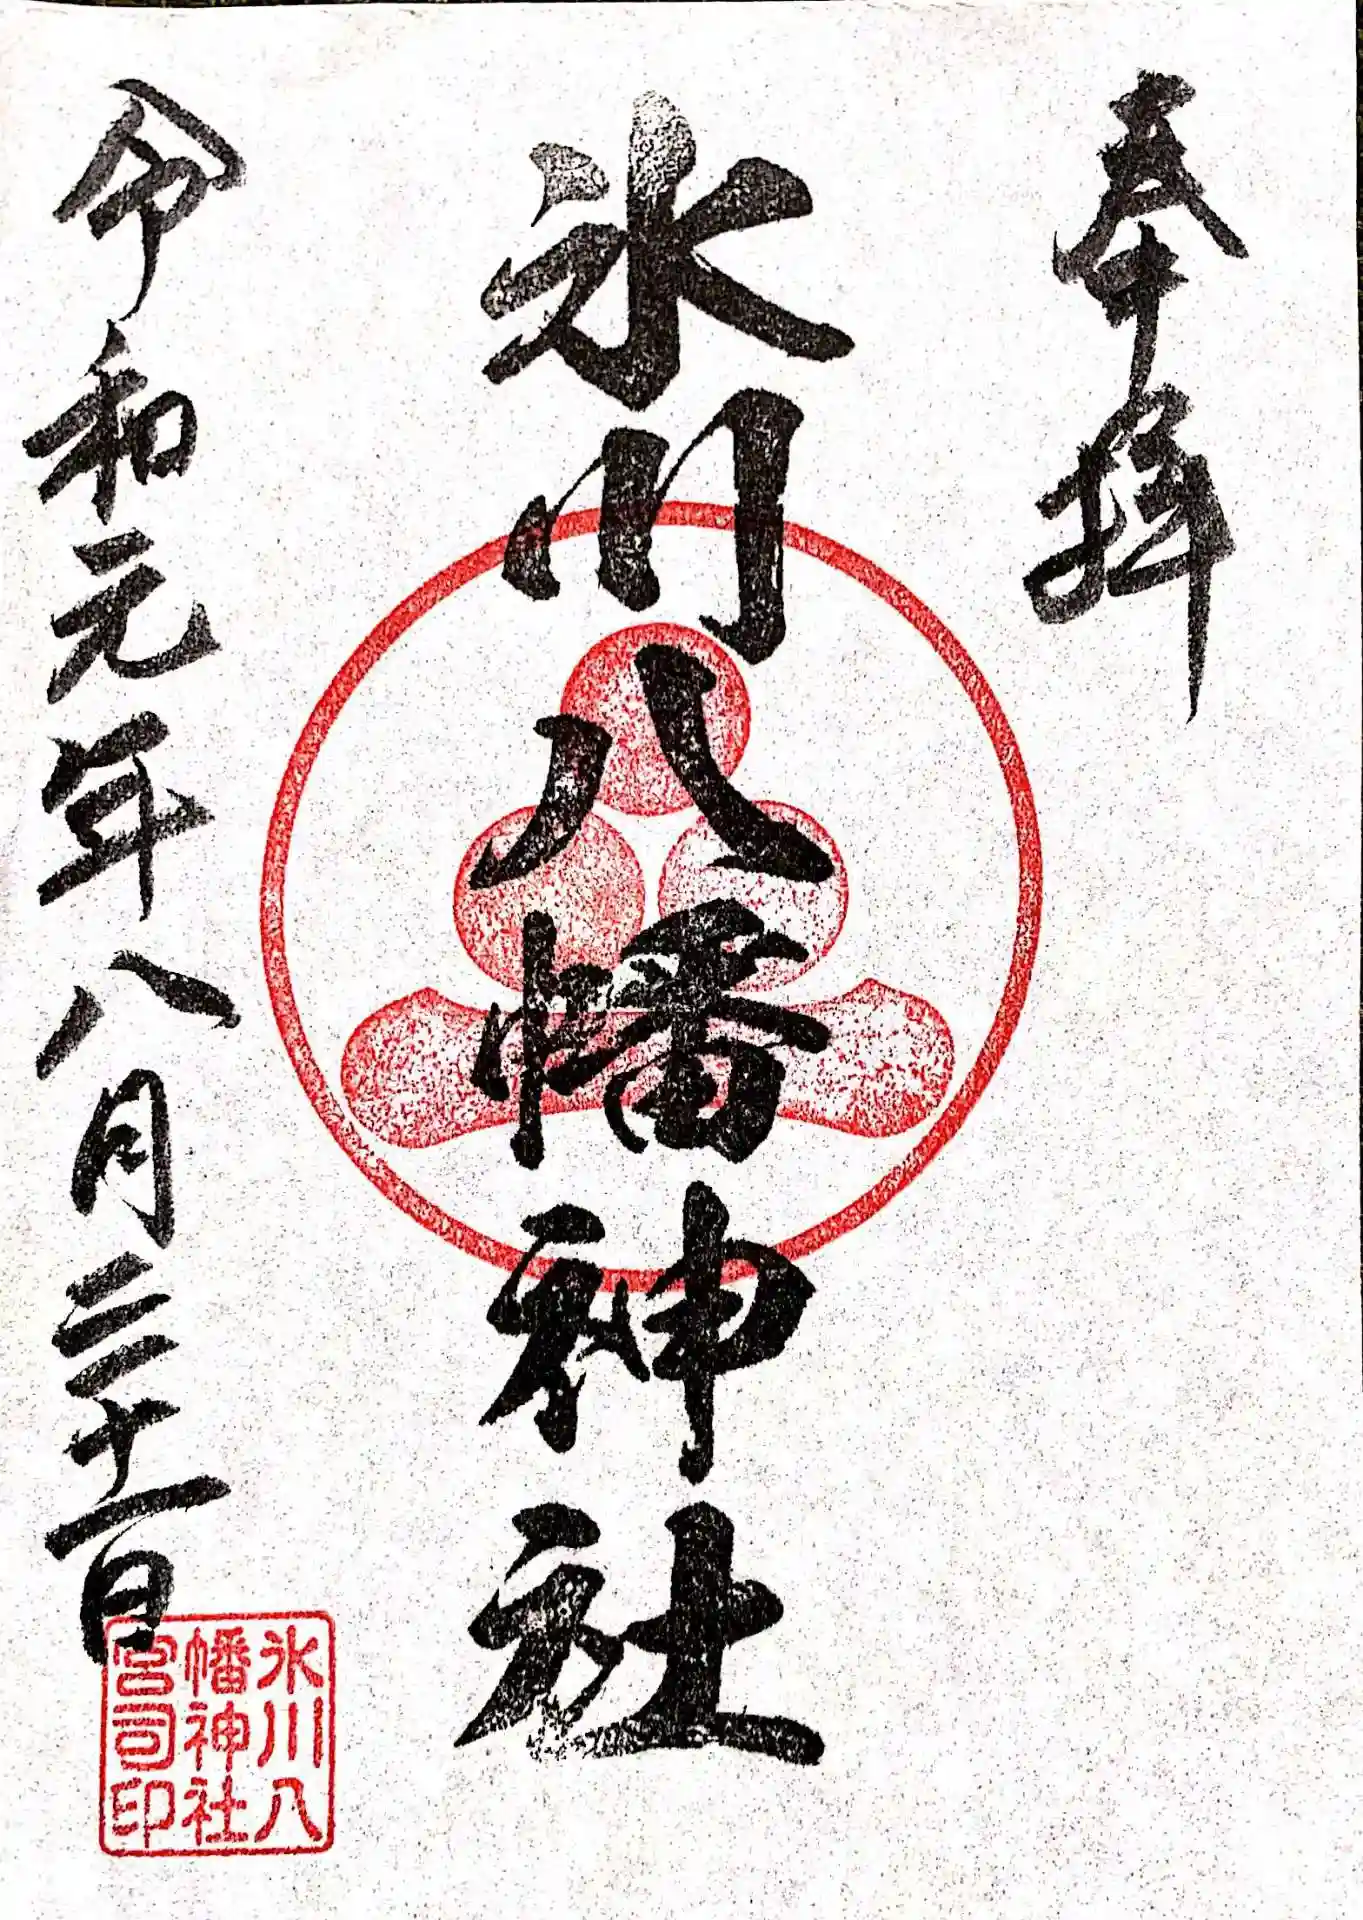 奉拝
氷川八幡神社
令和元年八月二十一日
氷川八
幡神社
宮司印